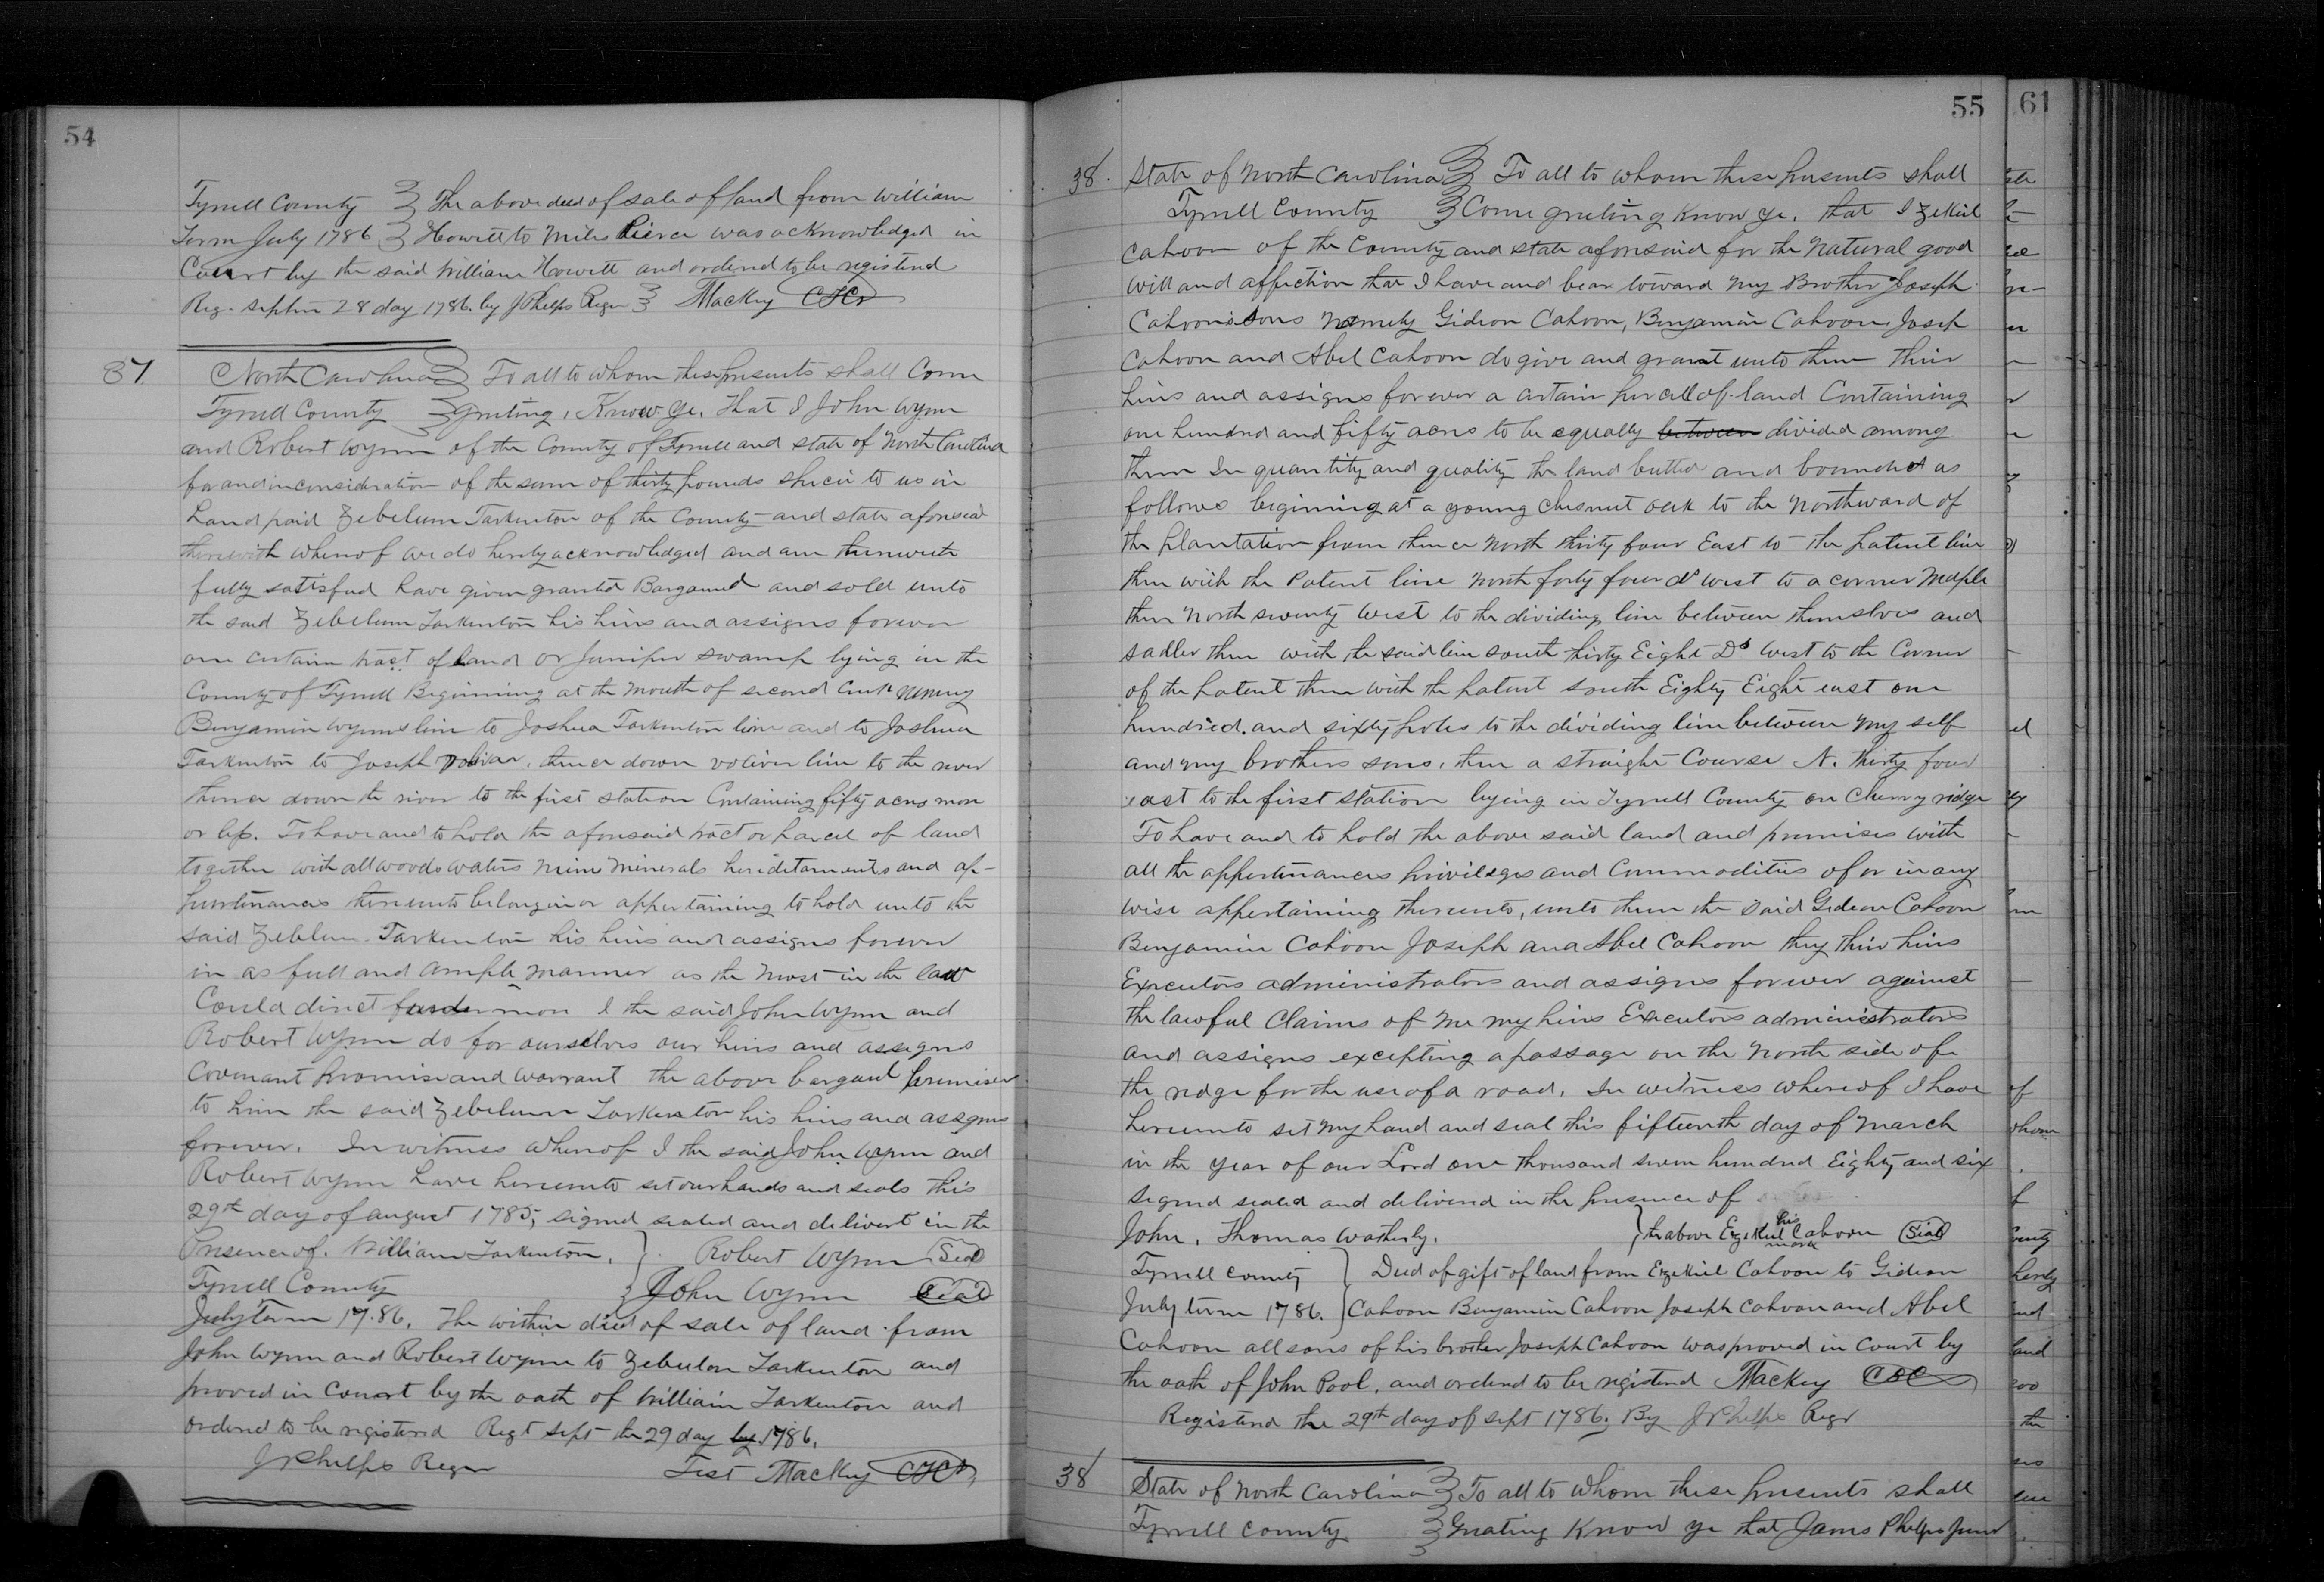 54
Tyrrell County } The above deed of sale of land from William
Term July 1786 } Howett to Miles Pierce was acknowledged in
Court by the said William Howett and ordered to be registered
Reg. Septem 28 day 1786. by J Phelps Regr } Mackey CTCr
37.
North Carolina } To all to whom these presents shall Come
Tyrrell County } greeting, Know ye. that I John Wynn
and Robert Wynn of the County of Tyrrell and state of North Carolina
for and in consideration of the sum of thirty pounds specie to us in
hand paid Zebelum Tarkenton of the County and state aforesaid
therewith whereof we do hereby acknowledged and am therewith
fully satisfied have given granted Bargained and sold unto
the said Zebelum Tarkenton his heirs and assigns forever
one certain tract of land or Juniper swamp lying in the
County of Tyrrell Beginning at the mouth of second Creek runing
Benjamin Wynns line to Joshua Tarkenton line and to Joshua
Tarkenton to Joseph Volivar, thence down voliver line to the river
thence down the river to the first station Containing fifty acres more
or less. To have and to hold the aforesaid tract or parcel of land
together with all woods waters mines minerals heriditaments and ap-
purtinances thereunto belongin or appertaining to hold unto the
said Zeblum Tarkenton his heirs and assigns forever
in as full and ample manner as the most in the law
Could direct furder more I the said John Wynn and
Robert Wynn do for ourselves our heirs and assigns
Covenant promise and warrant the above bargand premises
to him the said Zebelum Tarkenton his heirs and assgns
forever. In witness whereof I the said John Wynn and
Robert Wynn have hereunto set our hands and seals this
29th day of august 1785, signed sealed and delivert in the
Presence of. William Tarkenton. } Robert Wynn Seal
Tyrrell County } John Wynn Seal
July Term 1786. The within deed of sale of land from
John Wynn and Robert Wynne to Zebulon Tarkenton and
proved in Court by the oath of William Tarkenton and
ordered to be registered Regt Sept the 29 day by 1786.
J Phelps Regr Test Mackey CTCr
55
38.
State of North Carolina } To all to whom these presents shall
Tyrrell County } Come greeting Know ye. that I Zekiel
Cahoon of the County and state aforesaid for the Natural good
will and affection that I have and bear toward my Brother Joseph
Cahoon's sons Namely Gideon Cahoon, Benjamin Cahoon, Joseph
Cahoon and Abel Cahoon do give and grant unto them their
heirs and assigns forever a certain percall of land Containing
one hundred and fifty acres to be equally between divided among
them In quantity and quality the land butted and bounded as
follows begining at a young Chesnut oak to the Northward of
the plantation from thence North thirty four East to the patent line
then with the Patent line North forty four do west to a corner Maple
then North seventy west to the dividing line between themselves and
Sadler then with the said line south thirty Eight Ds West to the Corner
of the patent then with the patent South Eighty Eight east one
hundred. and sixty poles to the dividing line between my self
and my brothers sons, then a straight Course N. thirty four
east to the first station lying in Tyrrell County on Cherry ridge
To have and to hold the above said land and premises with
all the appertinances privileges and Commodities of or in any
wise appertaining thereunto, unto them the said Gideon Cahoon
Benjamin Cahoon Joseph and Abel Cahoon they their heirs
Executors administrators and assigns forever against
the lawful Claims of me my heirs Executors administrators
and assigns excepting a passage on the North side of
the ridge for the use of a road. In witness whereof I have
hereunto set my hand and seal this fifteenth day of March
in the year of our Lord one thousand seven hundred Eighty and six
signed sealed and delivered in the presence of
John, Thomas Watherly. } the above Ezekiel his mark Cahoon Seal
Tyrrell County } Deed of gift of land from Ezekiel Cahoon to Gideon
July term 1786. } Cahoon Benjamin Cahoon Joseph Cahoon and Abel
Cahoon all sons of his brother Joseph Cahoon was proved in Court by
the oath of John Pool, and ordered to be registered Mackey CTC
Registered the 29th day of Sept 1786. By J Phelps Regr
38
State of North Carolina } To all to whom these presents shall
Tyrrell County } Greating Know ye that Jams Phelps Junr
61